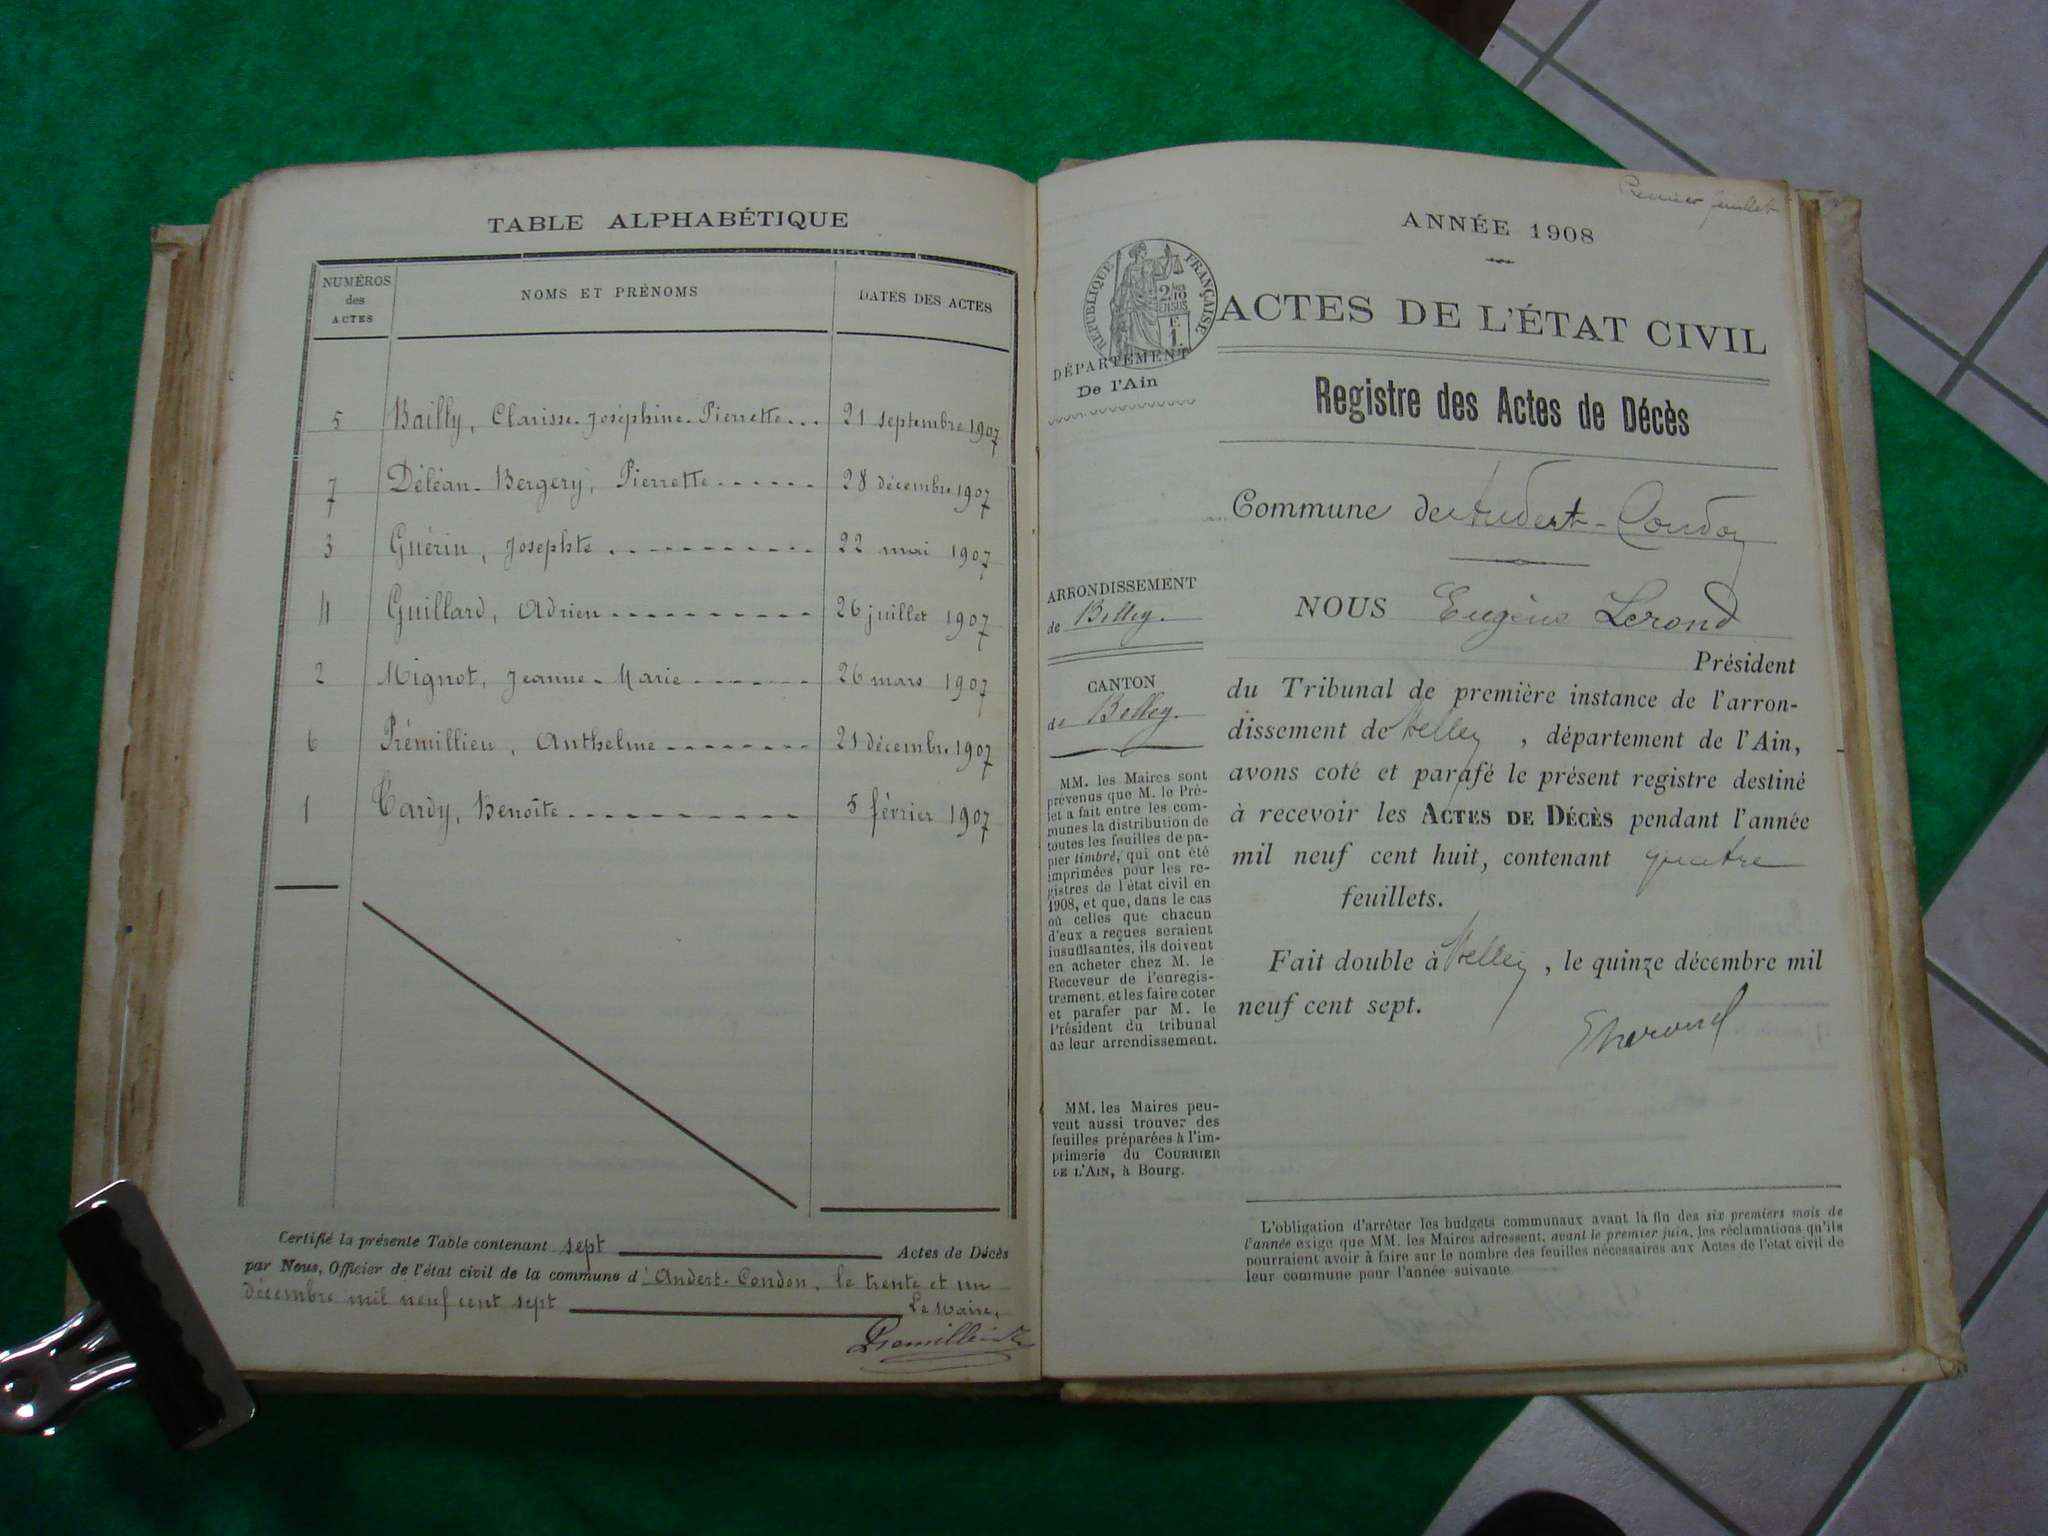 TABLE ALPHABÉTIQUE
NUMÉROS
des
ACTES
NOMS ET PRÉNOMS
DATES DES ACTES
5 Bailly, Clarisse-Joséphine-Pierrette 21 septembre 1907
7 Déléan-Bergery, Pierrette 28 décembre 1907
3 Guérin, Josephte 22 mai 1907
4 Guillard, Adrien 26 juillet 1907
2 Mignot, Jeanne-Marie 26 mars 1907
6 Prémillieu, Anthelme 21 décembre 1907
1 Tardy, Benoîte 5 février 1907
Certifié la présente Table contenant sept Actes de Décès
par Nous, Officier de l'état civil de la commune d'Andert-Condon, le trente et un
décembre mil neuf cent sept Le Maire,
Premillieu
Premier feuillet
ANNÉE 1908
RÉPUBLIQUE FRANÇAISE
2/10
EN SUS
F.
1.
ACTES DE L'ÉTAT CIVIL
DÉPARTEMENT
De l'Ain
Registre des Actes de Décès
Commune de Andert-Condon
ARRONDISSEMENT
de Belley.
CANTON
de Belley.
MM. les Maires sont
prévenus que M. le Pré-
fet a fait entre les com-
munes la distribution de
toutes les feuilles de pa-
pier timbré, qui ont été
imprimées pour les re-
gistres de l'état civil en
1908, et que, dans le cas
où celles que chacun
d'eux a reçues seraient
insuffisantes, ils doivent
en acheter chez M. le
Receveur de l'enregis-
trement, et les faire coter
et parafer par M. le
Président du tribunal
de leur arrondissement.
MM. les Maires peu-
vent aussi trouver des
feuilles préparées à l'im-
primerie du COURRIER
DE L'AIN, à Bourg.
NOUS Eugène Lerond
Président
du Tribunal de première instance de l'arron-
dissement de Belley, département de l'Ain,
avons coté et parafé le présent registre destiné
à recevoir les ACTES DE DÉCÈS pendant l'année
mil neuf cent huit, contenant quatre
feuillets.
Fait double à Belley, le quinze décembre mil
neuf cent sept.
L'obligation d'arrêter les budgets communaux avant la fin des six premiers mois de
l'année exige que MM. les Maires adressent, avant le premier juin, les réclamations qu'ils
pourraient avoir à faire sur le nombre des feuilles nécessaires aux Actes de l'état civil de
leur commune pour l'année suivante